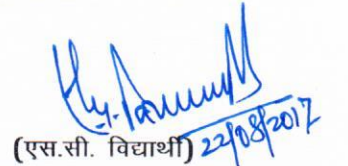 (एस.सी. विद्यार्थी) 22/08/2017